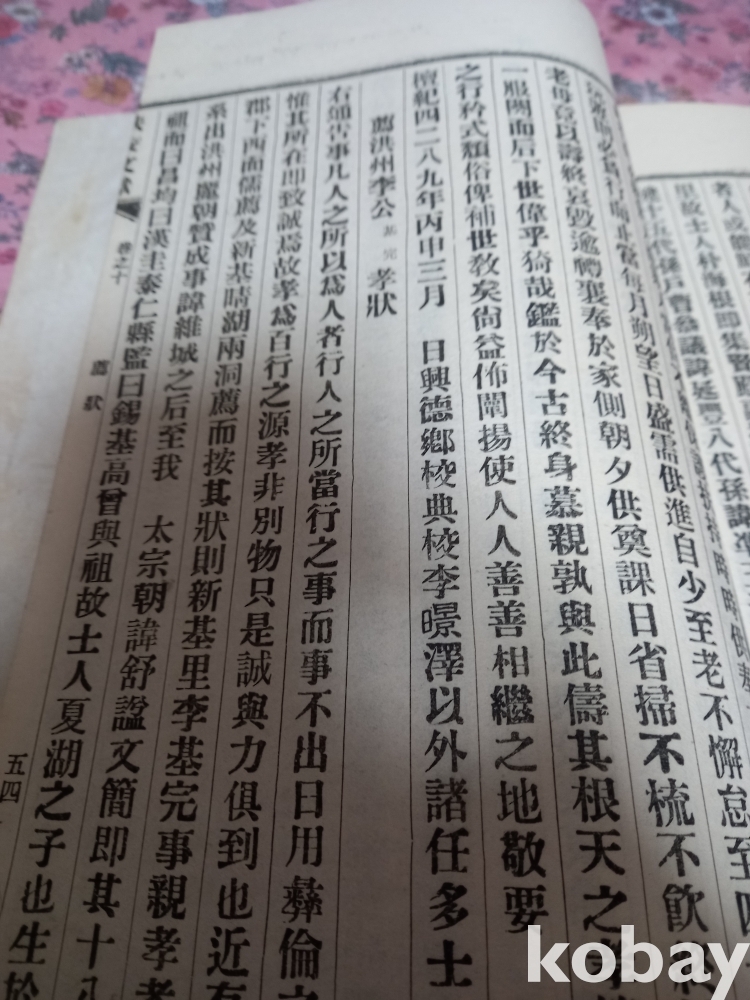 者人
里故士人朴海根即集賢殿
十五代孫戶曹參議諱延豊八代孫諱準
行而止當每月朔望日盛需供進自少至老不懈怠至四
老母竟以壽終哀毁逾禮襄奉於家側朝夕供奠課日省掃不梳不飮
一服闋而后下世偉乎猗哉鑑於今古終身慕親孰與此儔其根天之
之行矜式頹俗俾補世敎矣尙益佈闡揚使人人善善相繼之地敬要
檀紀四二八九年丙申三月 日興德鄕校典校李暻澤以外諸任多士
薦洪州李公基完孝狀
右通古事凡人之所以爲人者行人之所當行之事而事不出日用彝倫之
惟其所在即致誠焉故孝爲百行之源孝非別物只是誠與力俱到也近有
郡下西面儒薦及新基晴湖兩洞薦而按其狀則新基里李基完事親孝者
系出洪州麗朝贊成事諱維城之后至我 太宗朝諱舒諡文簡即其十八
祖而曰昌均曰漢圭泰仁縣監曰錫基高曾與祖故士人夏湖之子也生於
卷之十 薦狀 五四
kobay